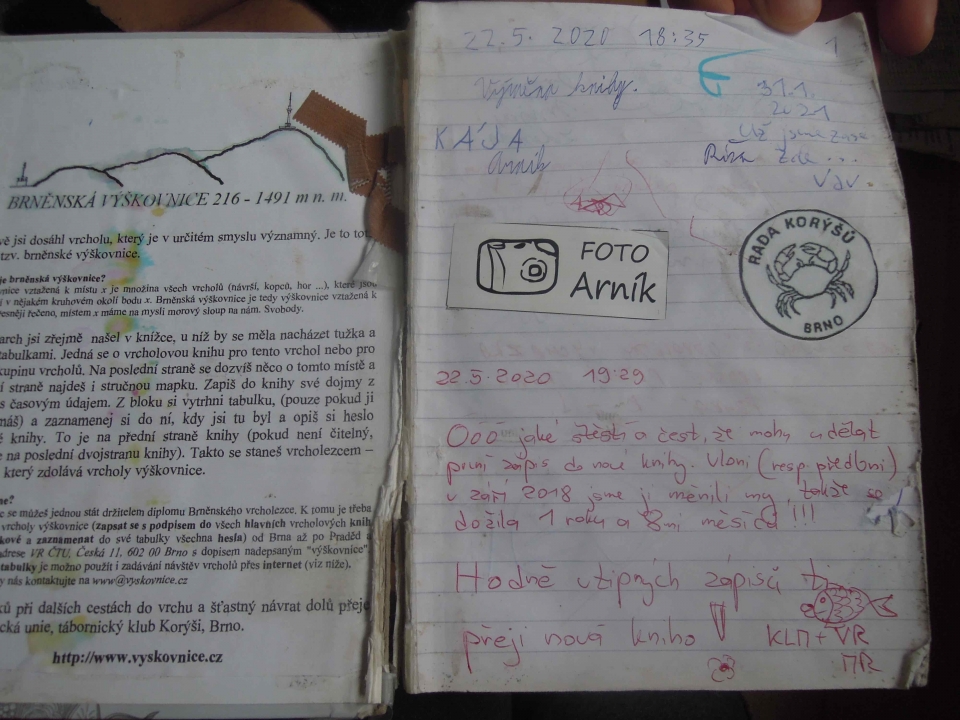 BRNĚNSKÁ VÝŠKOVNICE 216 - 1491 m n. m.
vě jsi dosáhl vrcholu, který je v určitém smyslu významný. Je to tot
tzv. brněnské výškovnice.
je brněnská výškovnice?
nice vztažená k místu x je množina všech vrcholů (návrší, kopců, hor ...), které jsou
í v nějakém kruhovém okolí bodu x. Brněnská výškovnice je tedy výškovnice vztažená k
esněji řečeno, místem x máme na mysli morový sloup na nám. Svobody.
arch jsi zřejmě našel v knížce, u níž by se měla nacházet tužka a
abulkami. Jedná se o vrcholovou knihu pro tento vrchol nebo pro
kupinu vrcholů. Na poslední straně se dozvíš něco o tomto místě a
í straně najdeš i stručnou mapku. Zapiš do knihy své dojmy z
s časovým údajem. Z bloku si vytrhni tabulku, (pouze pokud ji
máš) a zaznamenej si do ní, kdy jsi tu byl a opiš si heslo
é knihy. To je na přední straně knihy (pokud není čitelný,
e na poslední dvojstranu knihy). Takto se staneš vrcholezcem –
který zdolává vrcholy výškovnice.
me?
c se můžeš jednou stát držitelem diplomu Brněnského vrcholezce. K tomu je třeba
vrcholy výškovnice (zapsat se s podpisem do všech hlavních vrcholových knih
kové a zaznamenat do své tabulky všechna hesla) od Brna až po Praděd a
drese VR ČTU, Česká 11, 602 00 Brno s dopisem nadepsaným "výškovnice".
tabulky je možno použít i zadávání návštěv vrcholů přes internet (viz níže).
y nás kontaktujte na www@vyskovnice.cz
ků při dalších cestách do vrchu a šťastný návrat dolů přeje
cká unie, tábornický klub Korýši, Brno.
http://www.vyskovnice.cz
22.5. 2020 18:35
1
Výměna knihy.
31.1.
2021
KÁJA
Arník
Už jsme zase
zde...
VdV.
FOTO
Arník
RADA KORÝŠŮ
BRNO
22.5.2020 19:29
Óóó jaké štěstí a čest, že mohu udělat
první zápis do nové knihy. Vloni (resp. předloni)
v září 2018 jsme ji měnili my, takže se
dožila 1 roku a 8mi měsíců !!!
Hodně vtipných zápisů ti
přeji nová kniho !
KLM + VR
MR